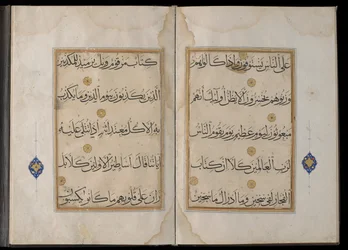 على الناس يستوفون واذا كالوهم
وزنوهم يخسرون الا يظن اولئك انهم
مبعوثون ليوم عظيم يوم يقوم الناس
لرب العالمين كلا ان كتاب
الفجار لفي سجين وما ادراك ما سجين
كتاب مرقوم ويل يومئذ للمكذبين
الذين يكذبون بيوم الدين وما يكذب
به الا كل معتد اثيم اذا تتلى عليه
اياتنا قال اساطير الاولين كلا بل
ران على قلوبهم ما كانوا يكسبون